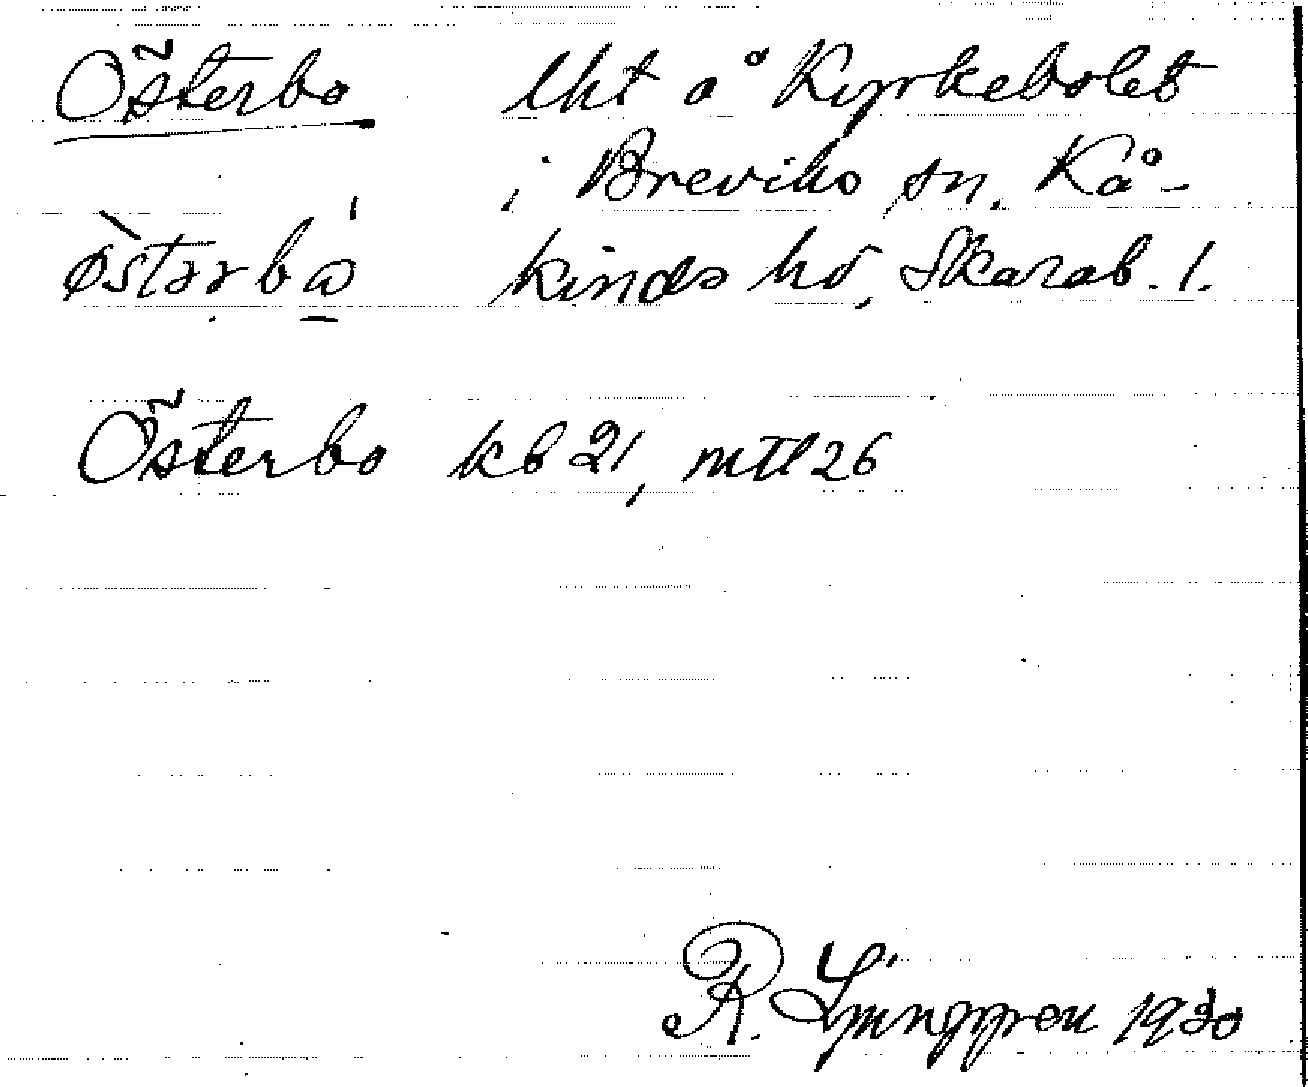 Österbo lht å Kyrkebolet
i Breviks sn. Kå-
kinds hd, Skarab. l.
Österbo kb 21, mtl 26
R. Ljunggren 1930